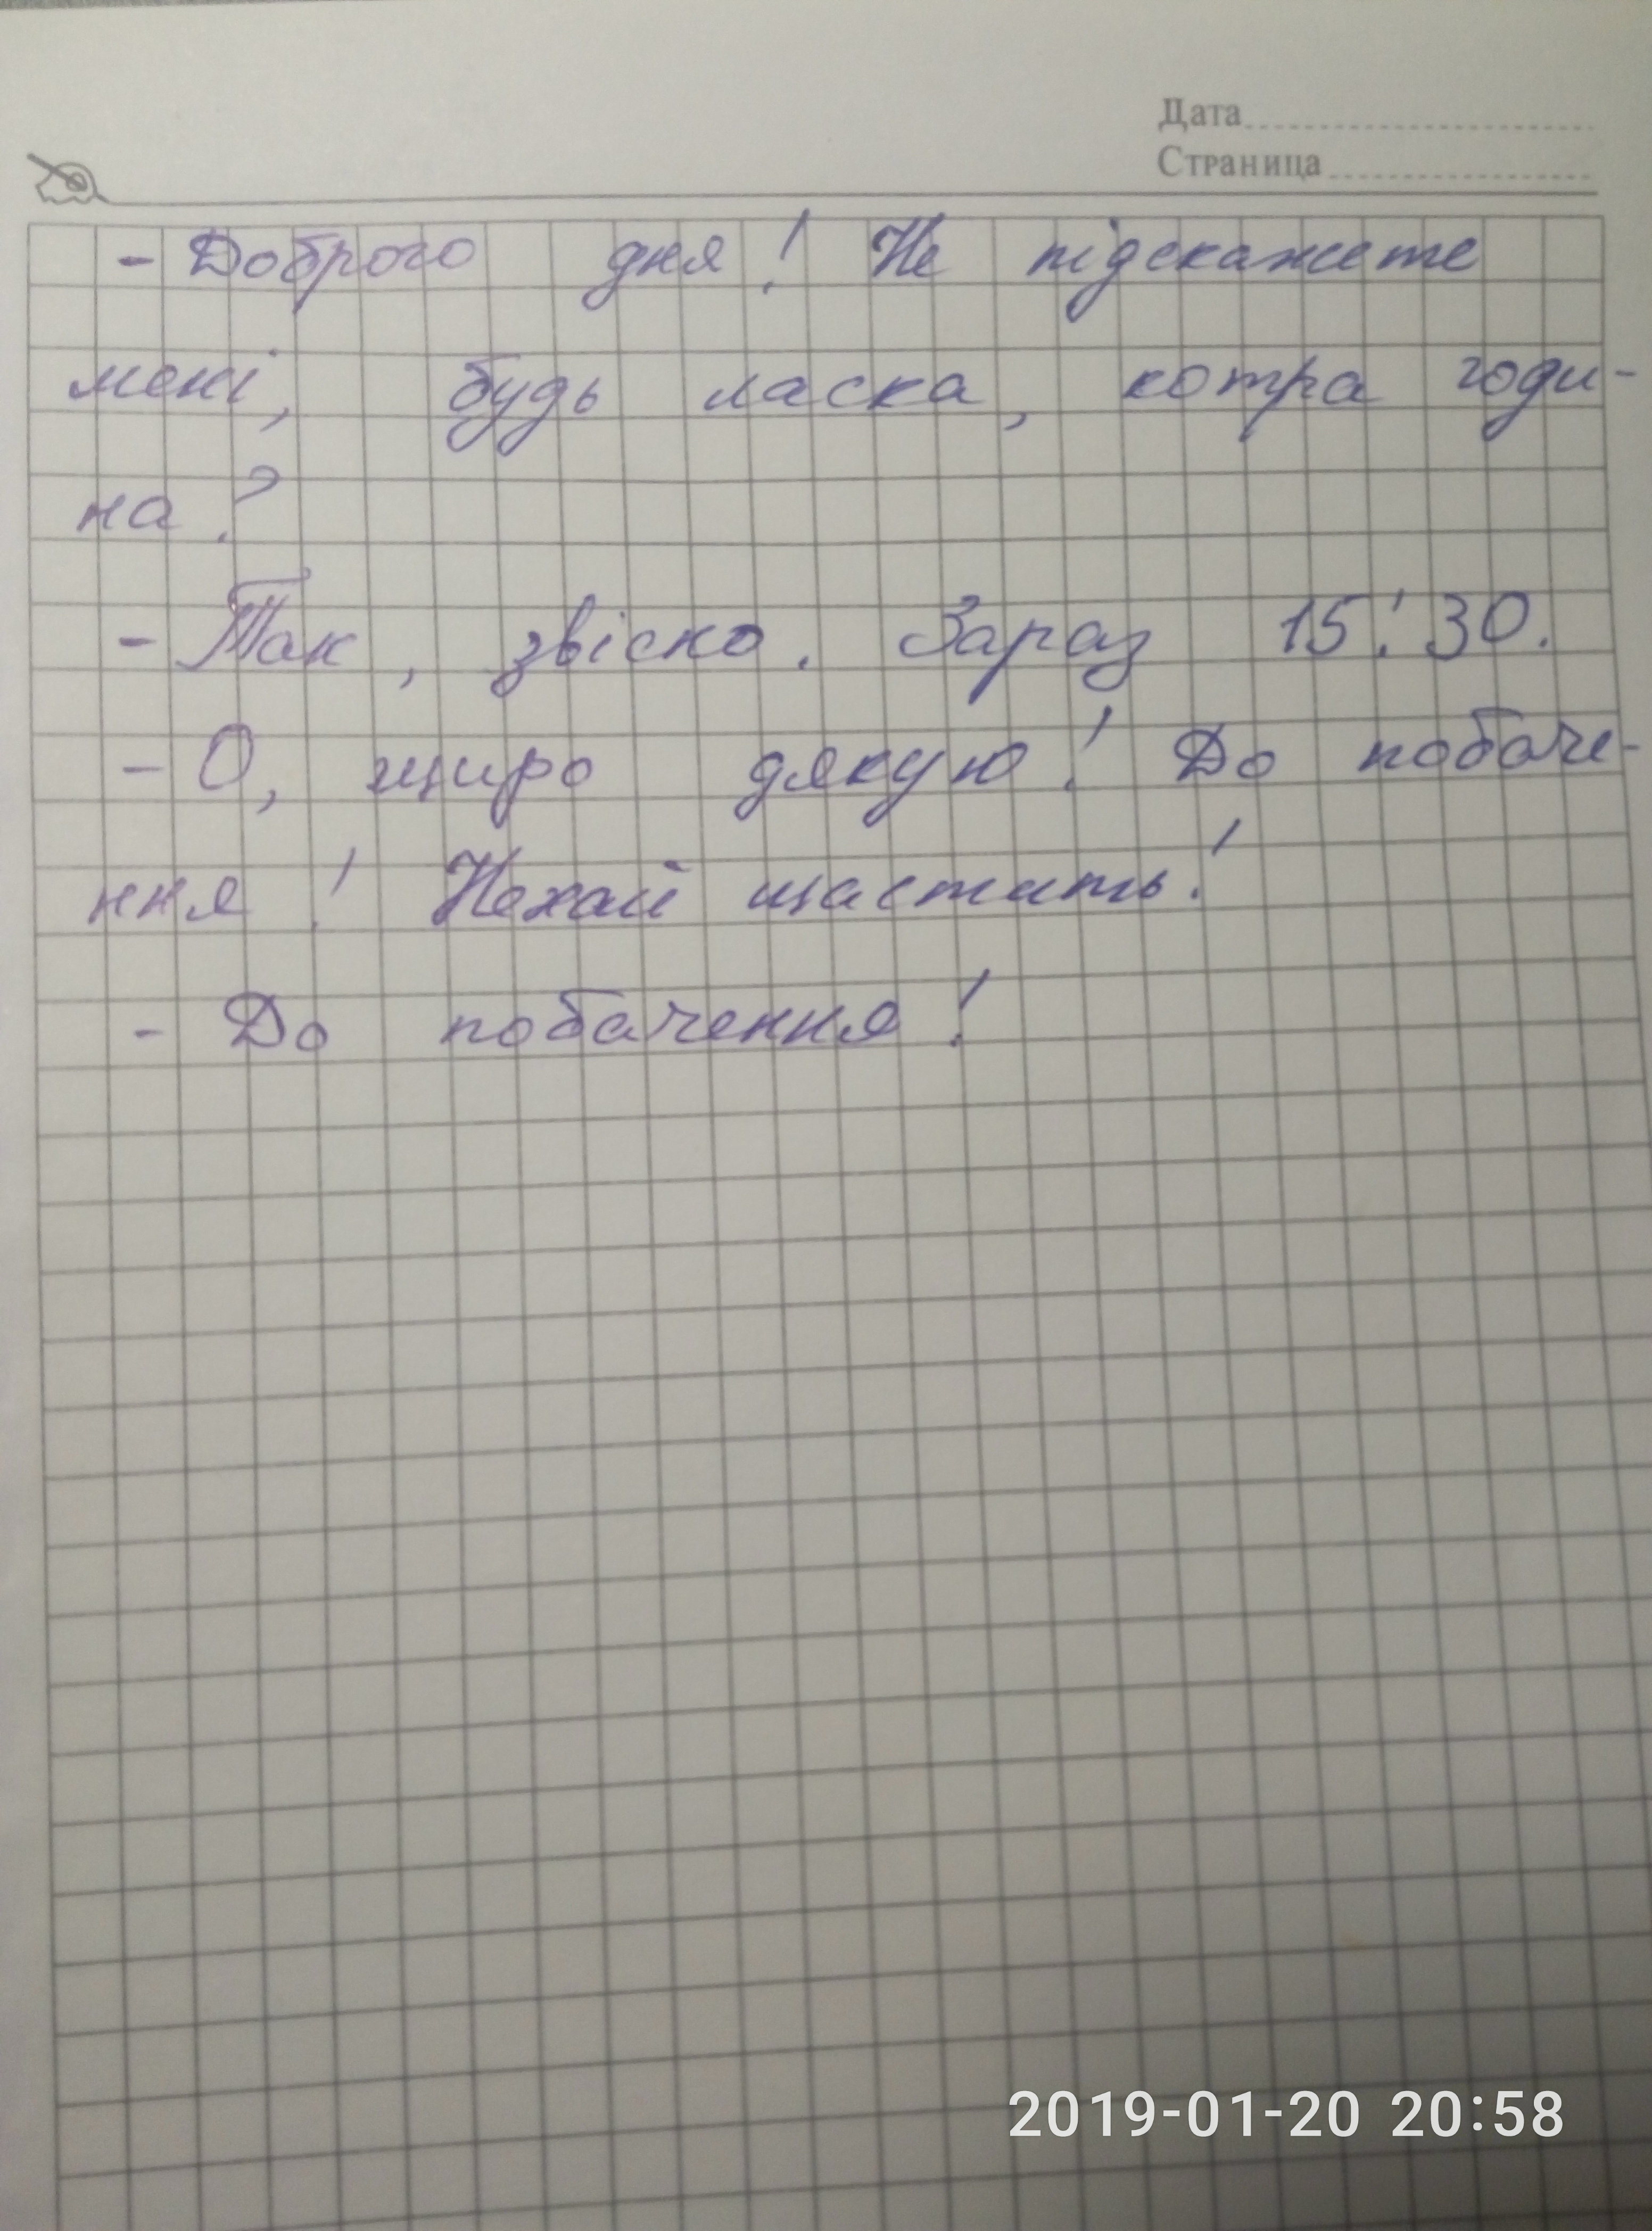 Дата
Страница
- Доброго дня! Не підскажете
мені, будь ласка, котра годи-
на?
- Так, звісно. Зараз 15:30.
- О, щиро дякую! До побаче-
ння! Нехай щастить!
- До побачення!
2019-01-20 20:58